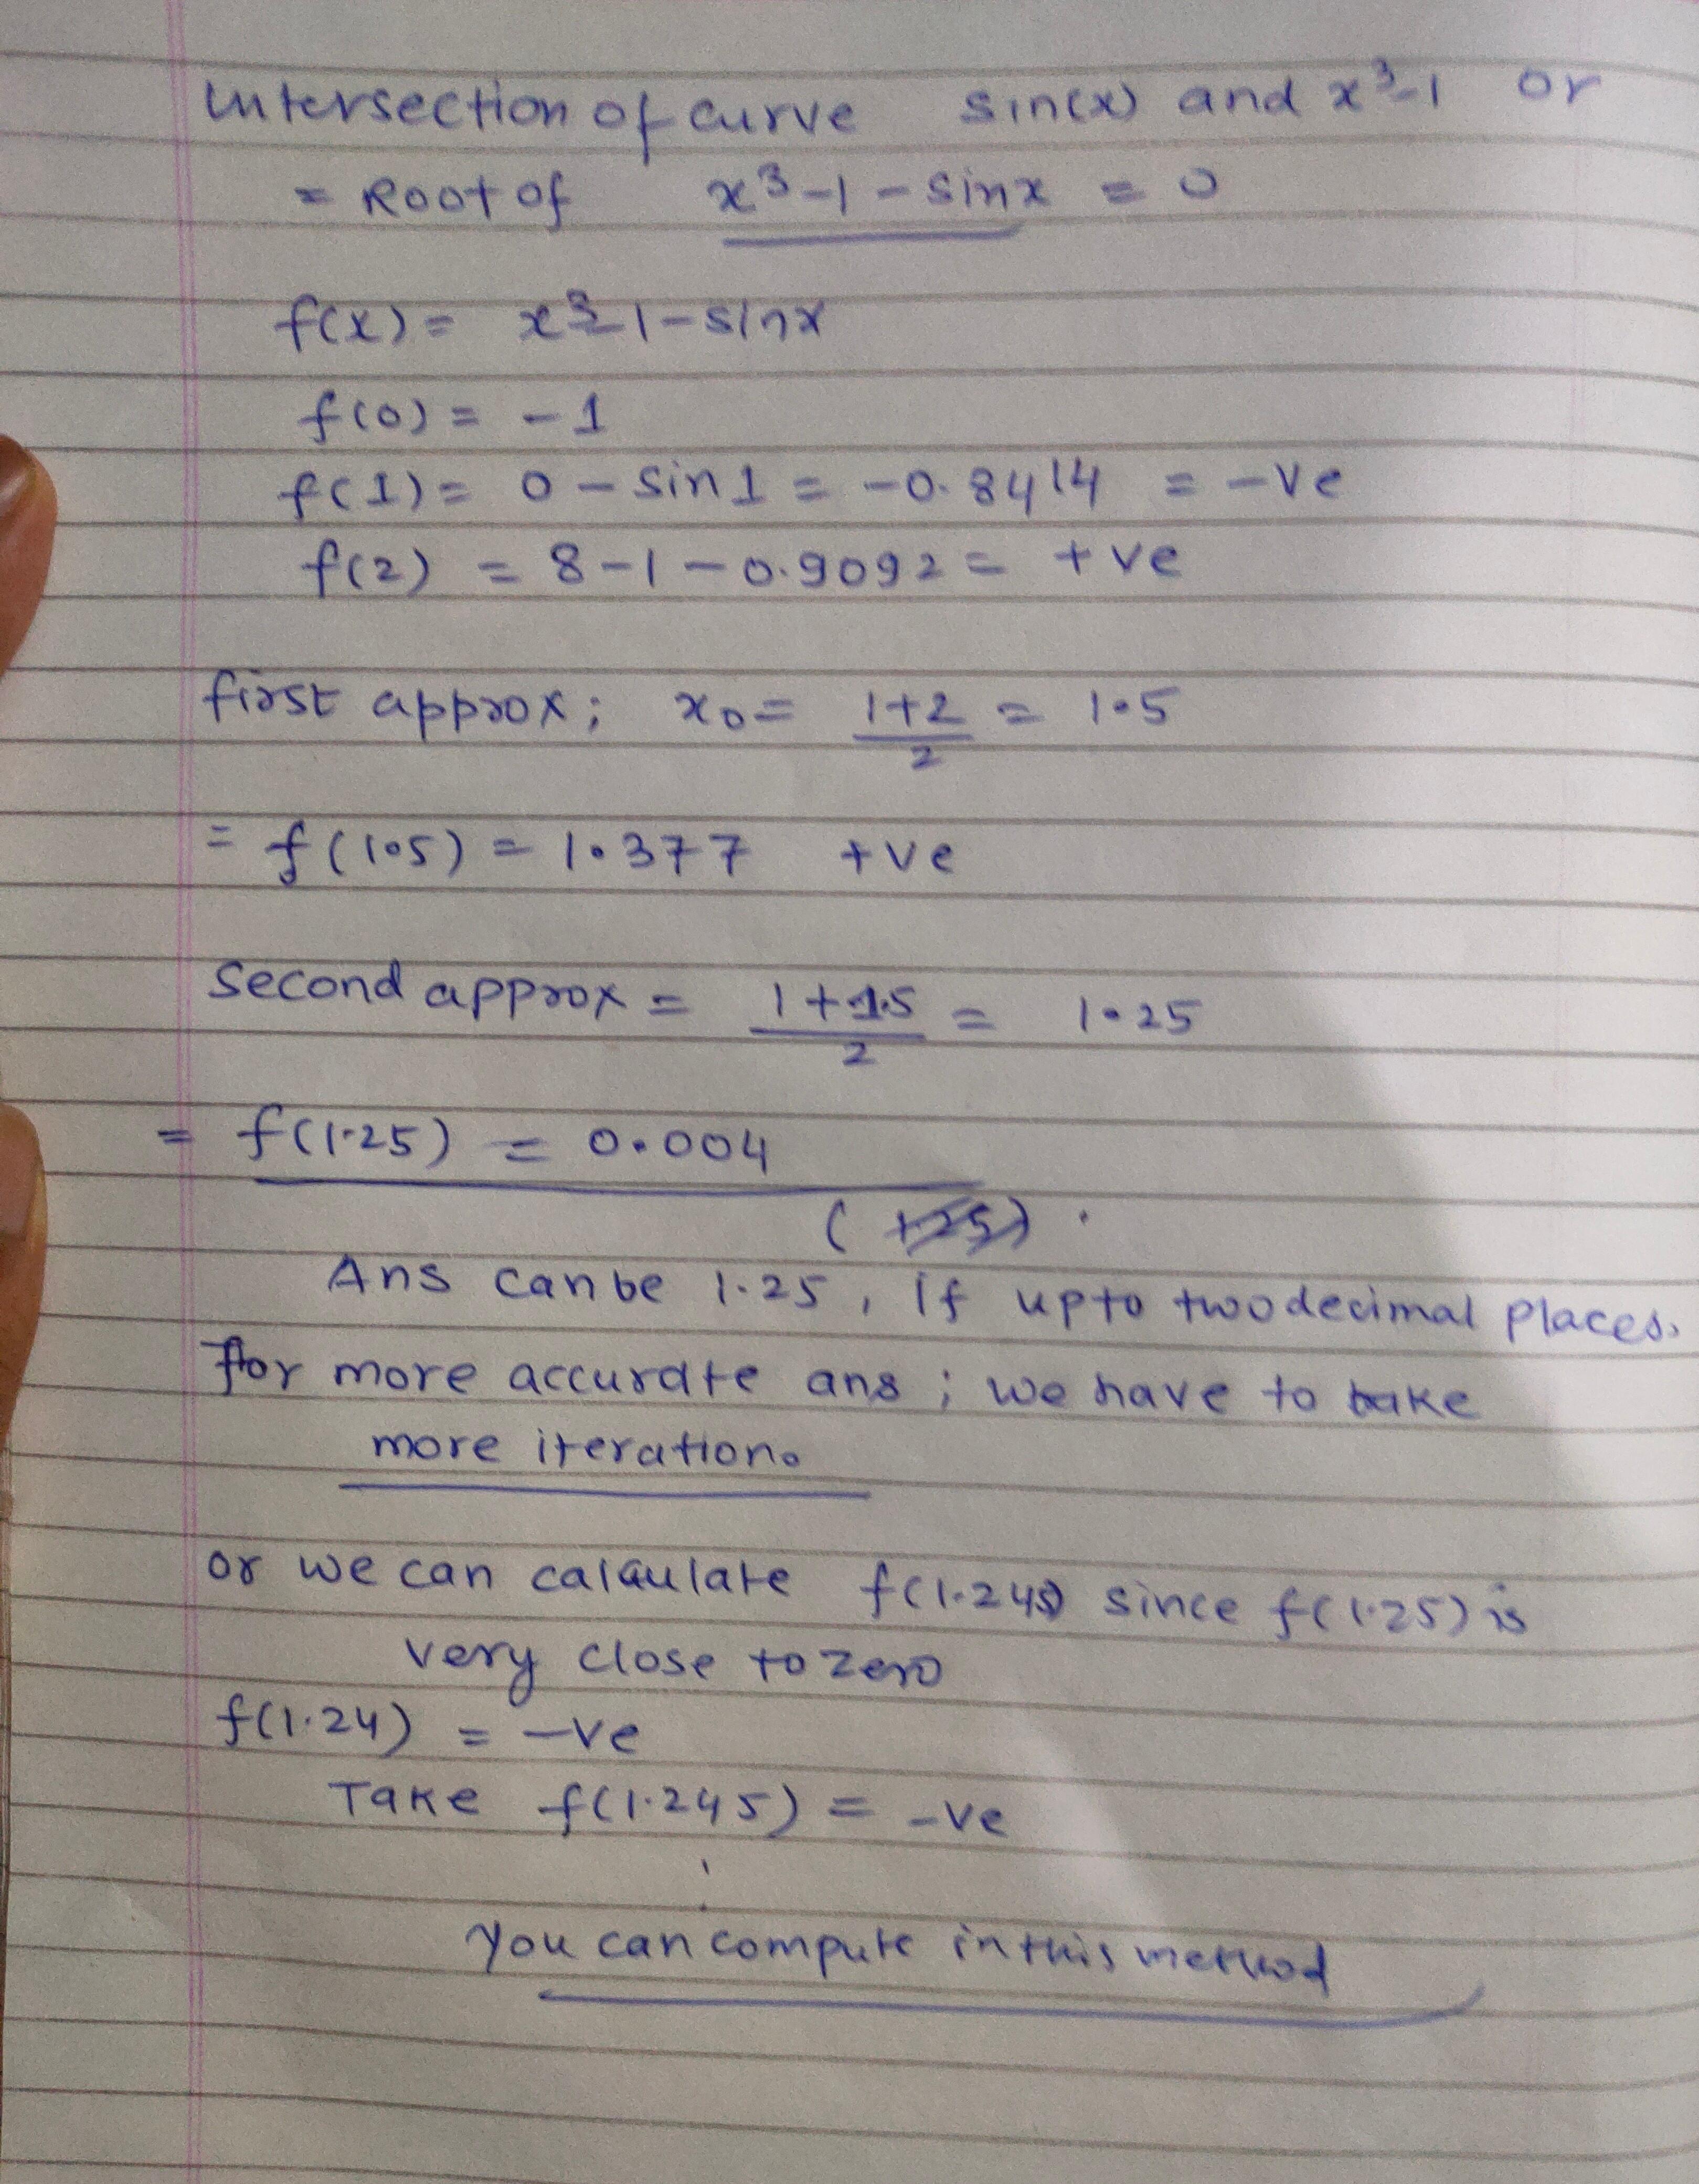 Intersection of curve sin(x) and x³-1 or
= Root of x³-1-sinx = 0
f(x) = x³-1-sinx
f(0) = -1
f(1) = 0 - sin1 = -0.8414 = -ve
f(2) = 8-1-0.9092 = +ve
first approx; x₀ = (1+2)/2 = 1.5
= f(1.5) = 1.377 +ve
Second approx = (1+1.5)/2 = 1.25
= f(1.25) = 0.004
Ans can be 1.25, if upto two decimal places.
for more accurate ans; we have to take
more iteration.
or we can calculate f(1.245) since f(1.25) is
very close to zero
f(1.24) = -ve
Take f(1.245) = -ve
You can compute in this method